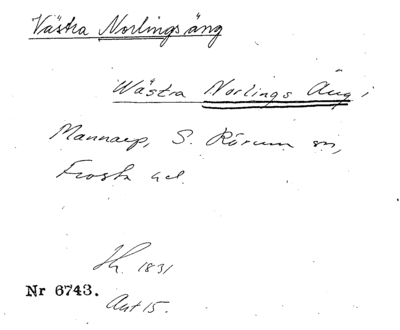 Västra Norlings äng
Wästra Norlings Äng i
Mannarp, S. Rörum sn,
Frosta hd.
1831
Nr 6743.
Akt 15.